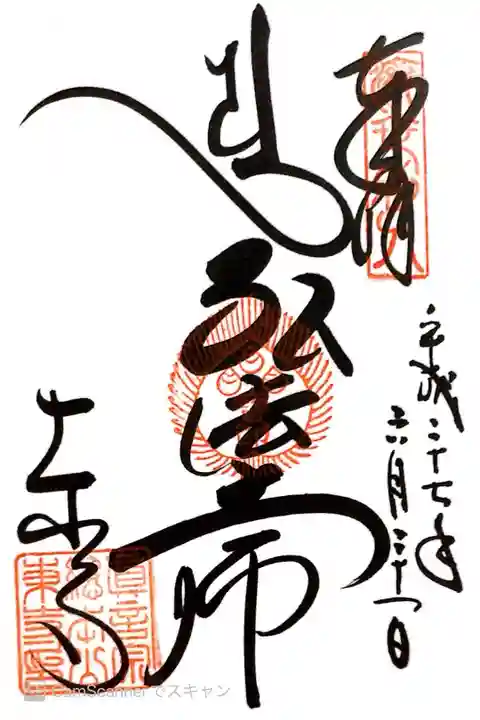 奉拝
平成二十七年
六月二十一日
弘法大師
東寺
真言宗
総本山
CamScanner でスキャン